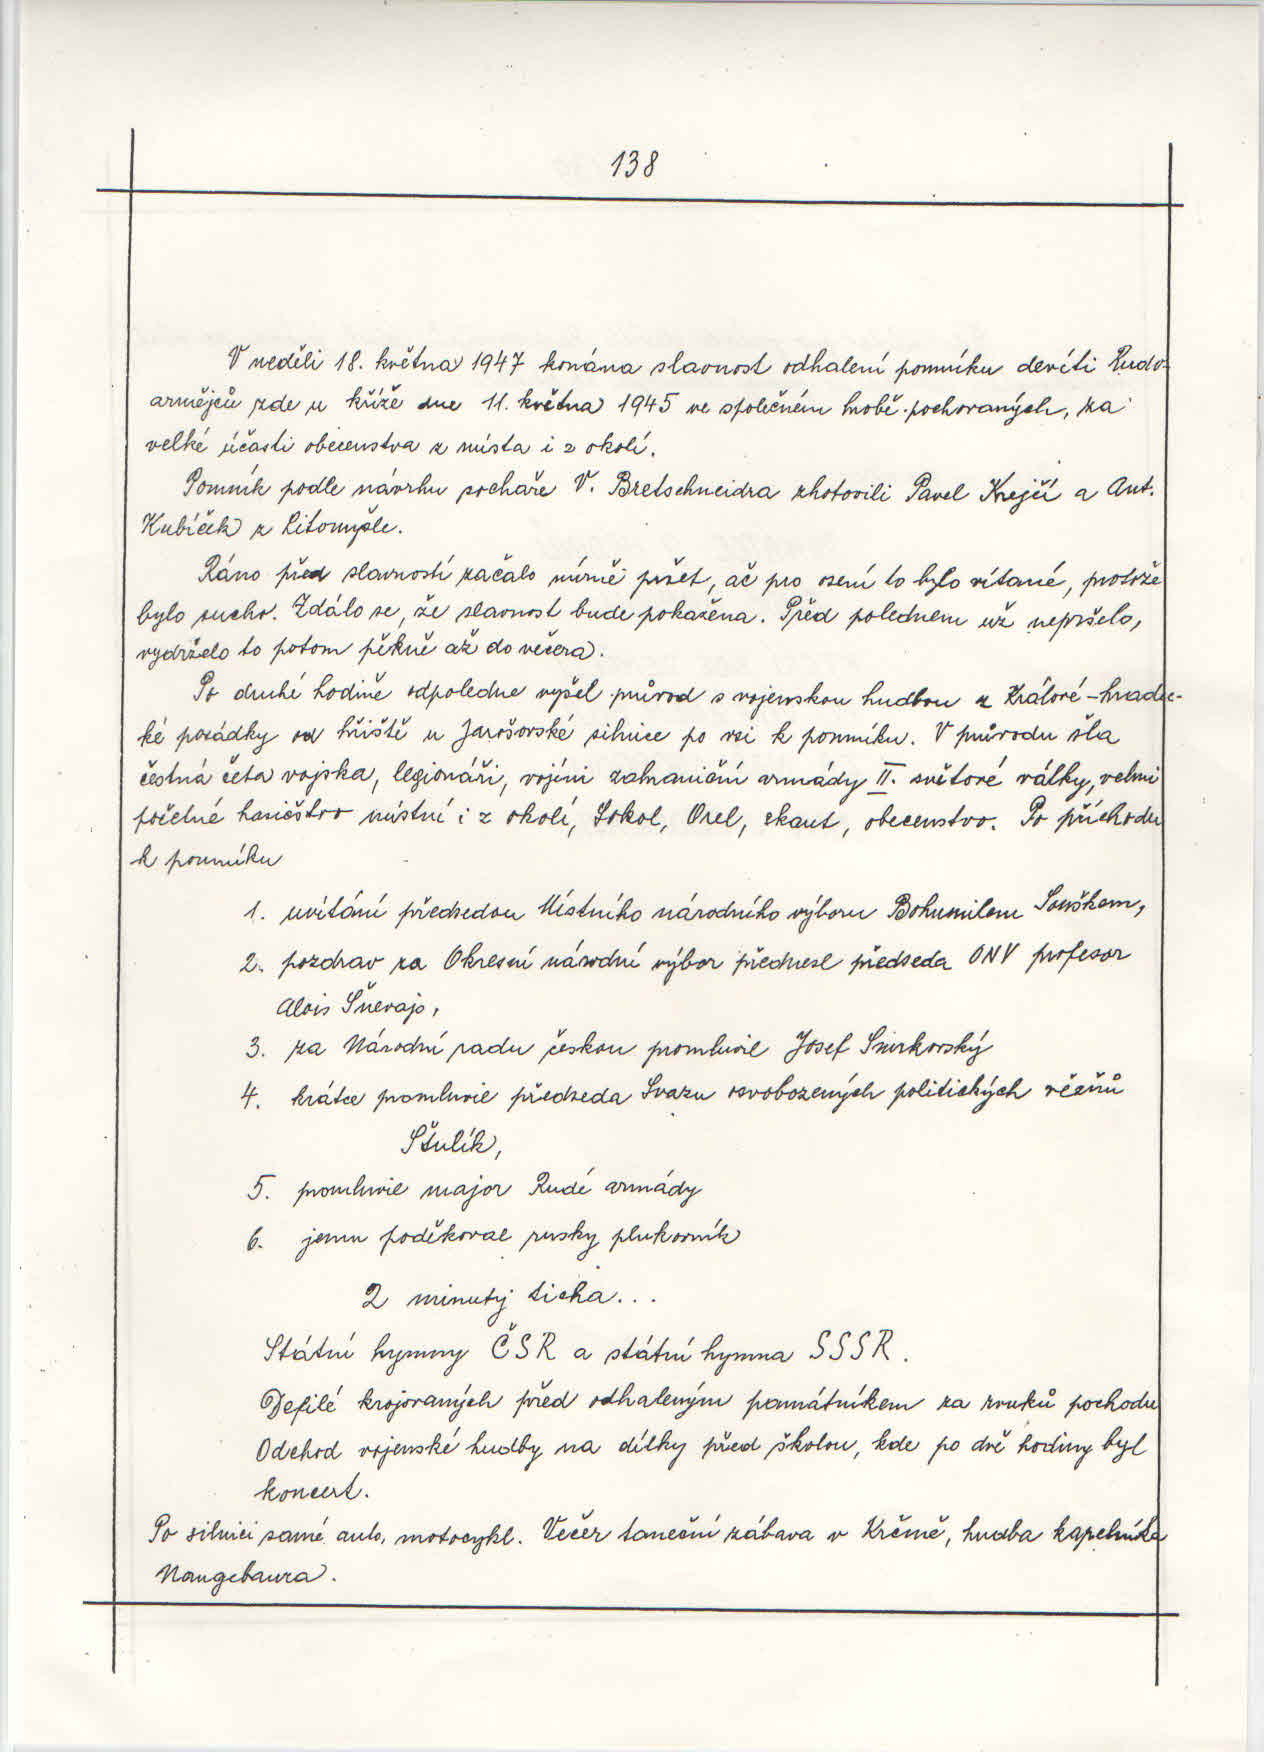 138
V neděli 18. května 1947 konána slavnost odhalení pomníku devíti Rudo-
armějců zde u kříže dne 11. května 1945 ve společném hrobě pochovaných, za
velké účasti obecenstva z místa i z okolí.
Pomník podle návrhu sochaře V. Bretschneidra zhotovili Pavel Krejčí a Ant.
Kubíček z Litomyšle.
Ráno před slavností začalo mírně pršet, ač pro osení to bylo vítané, protože
bylo sucho. Zdálo se, že slavnost bude pokažena. Před polednem už nepršelo,
vydrželo to potom pěkně až do večera.
Po druhé hodině odpoledne vyšel průvod s vojenskou hudbou z Králové-hradec-
ké posádky od hřiště u Jarošovské silnice po vsi k pomníku. V průvodu šla
čestná četa vojska, legionáři, vojíni zahraniční armády II. světové války, velmi
početné hasičstvo místní i z okolí, Sokol, Orel, skaut, obecenstvo. Po příchodu
k pomníku
1. uvítání předsedou Místního národního výboru Bohumilem Souškem,
2. pozdrav za Okresní národní výbor přednesl předseda ONV profesor
Alois Šnevajs,
3. za Národní radu českou promluvil Josef Smrkovský
4. krátce promluvil předseda Svazu osvobozených politických vězňů
Štulík,
5. promluvil major Rudé armády
6. jemu poděkoval rusky plukovník
2 minuty ticha...
Státní hymny ČSR a státní hymna SSSR.
Defilé krojovaných před odhaleným památníkem za zvuků pochodu
Odchod vojenské hudby na dílky před školou, kde po dvě hodiny byl
koncert.
Po silnici samé auto, motocykl. Večer taneční zábava v Krčmě, hudba kapelníka
Naugebaura.